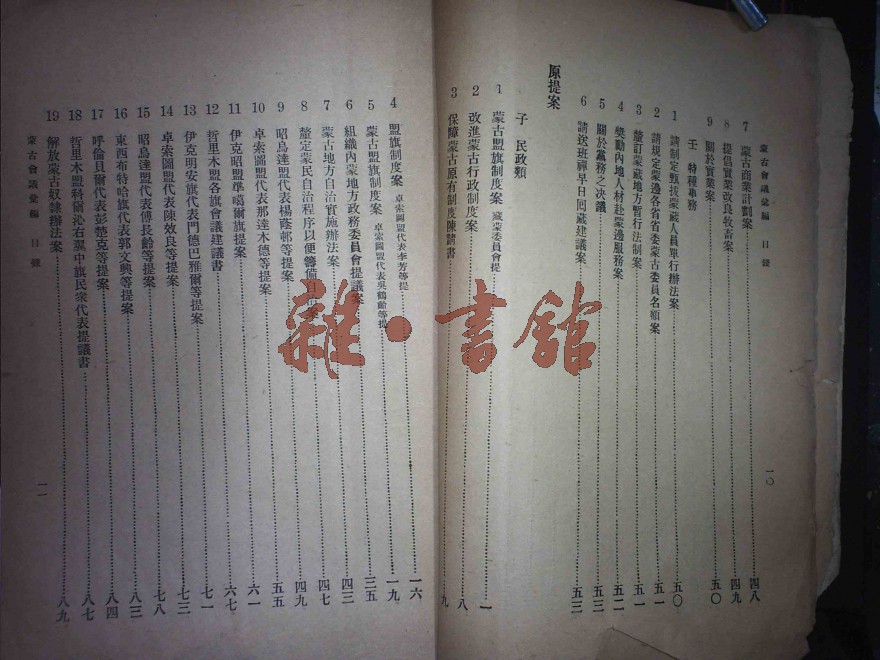 蒙古會議彙編 目錄 一〇
7 蒙古商業計劃案……四八
8 提倡實業改良牧畜案……四九
9 關於實業案……五〇
壬 特種事務
1 請制定甄拔蒙藏人員單行辦法案……五〇
2 請規定蒙邊各省省委蒙古委員名額案……五一
3 釐訂蒙藏地方暫行法制案……五一
4 獎勵內地人材赴蒙邊服務案……五二
5 關於黨務之決議……五三
6 請送班禪早日回藏建議案……五三
原提案
子 民政類
1 蒙古盟旗制度案 蒙藏委員會提……一
2 改進蒙古行政制度案……八
3 保障蒙古原有制度陳請書……九
4 盟旗制度案 卓索圖盟代表李芳等提……一九
5 蒙古盟旗制度案 卓索圖盟代表吳鶴齡等提……三五
6 組織內蒙地方政務委員會提議案……四三
7 蒙古地方自治實施辦法案……四七
8 釐定蒙民自治程序以便籌備自治案……四九
9 昭烏達盟代表楊蔭邨等提案……五五
10 卓索圖盟代表那達木德等提案……六一
11 伊克昭盟準噶爾旗提案……六七
12 哲里木盟各旗會議建議書……七一
13 伊克明安旗代表門德巴雅爾等提案……七三
14 卓索圖盟代表陳效良等提案……七八
15 昭烏達盟代表傅長齡等提案……八三
16 東西布特哈旗代表郭文興等提案……八四
17 呼倫貝爾代表彭楚克等提案……八七
18 哲里木盟科爾沁右翼中旗民衆代表提議書
19 解放蒙古奴隸辦法案……八九
蒙古會議彙編 目錄 一一
雜·書館